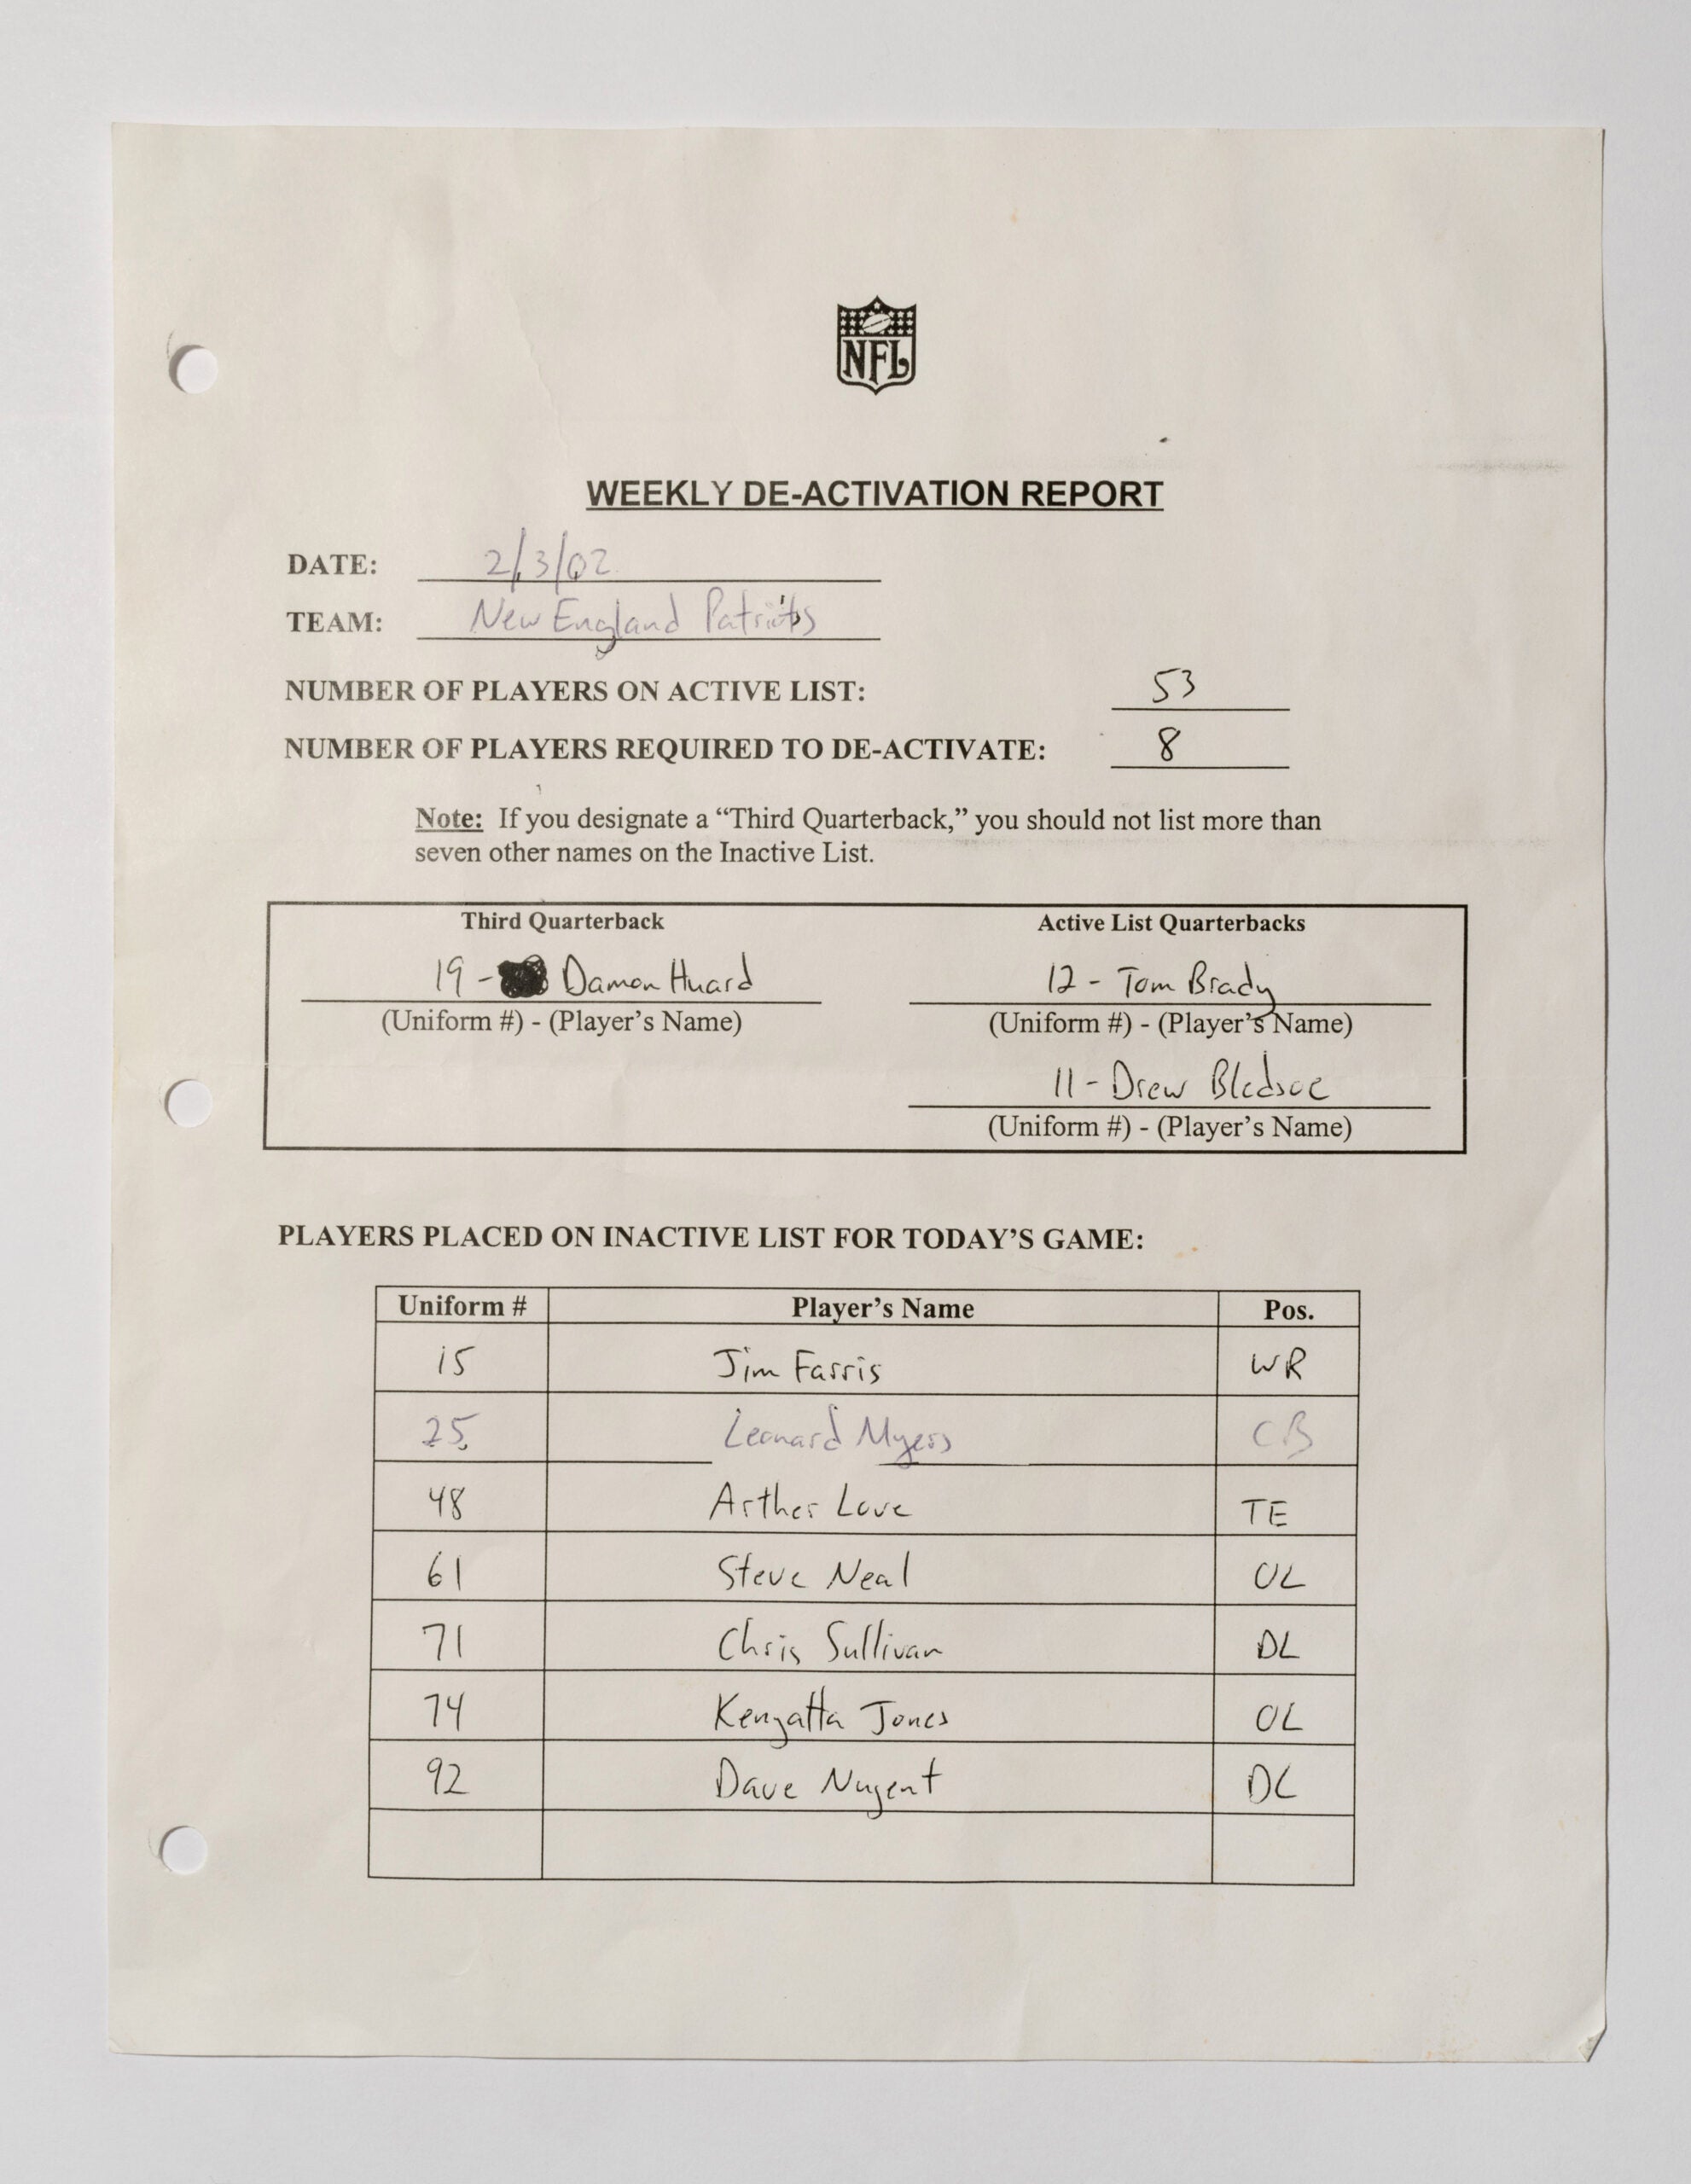 NFL
WEEKLY DE-ACTIVATION REPORT
DATE: 2/3/02
TEAM: New England Patriots
NUMBER OF PLAYERS ON ACTIVE LIST: 53
NUMBER OF PLAYERS REQUIRED TO DE-ACTIVATE: 8
Note: If you designate a “Third Quarterback,” you should not list more than
seven other names on the Inactive List.
Third Quarterback
19 - Damon Huard
(Uniform #) - (Player’s Name)
Active List Quarterbacks
12 - Tom Brady
(Uniform #) - (Player’s Name)
11 - Drew Bledsoe
(Uniform #) - (Player’s Name)
PLAYERS PLACED ON INACTIVE LIST FOR TODAY’S GAME:
Uniform # Player’s Name Pos.
15 Jim Farris WR
25 Leonard Myers CB
48 Arther Love TE
61 Steve Neal OL
71 Chris Sullivan DL
74 Kenyatta Jones OL
92 Dave Nugent DL